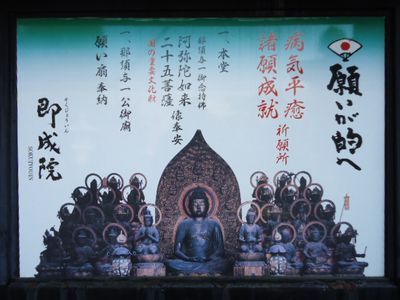 願いが的へ
病気平癒
諸願成就
祈願所
一、本堂
那須与一御念持佛
阿弥陀如来
二十五菩薩
像奉安
国の重要文化財
一、那須与一公御廟
願い扇奉納
即成院
そくじょういん
SOKUJYOUIN